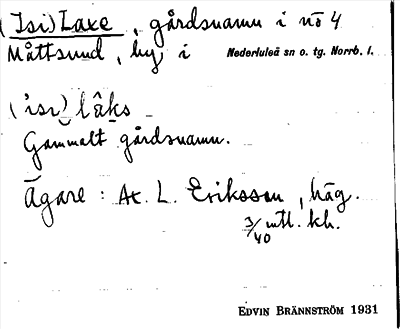 (Isi)Laxe, gårdsnamn i nö 4
Måttsund, by i Nederluleå sn o. tg. Norrb. l.
('isi) lâks
Gammalt gårdsnamn.
Ägare: A. L. Eriksson, häg.
3/40 mtl. kh.
EDVIN BRÄNNSTRÖM 1931